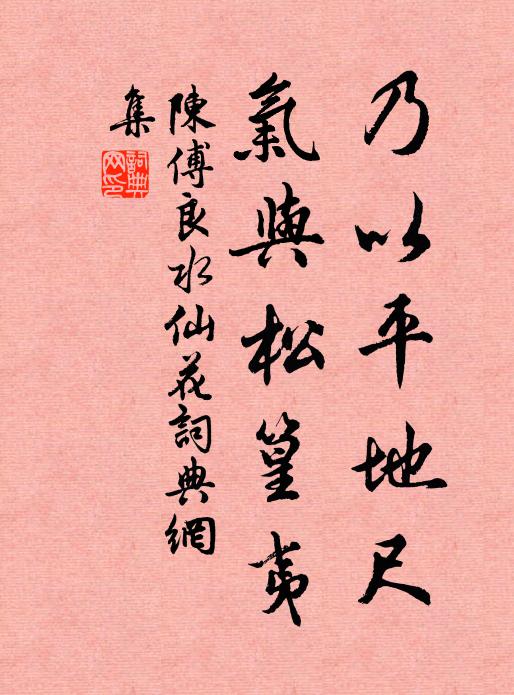 乃以平地尺
氣與松篁夷
陳傅良水仙花詞典網
集
詞典
网印